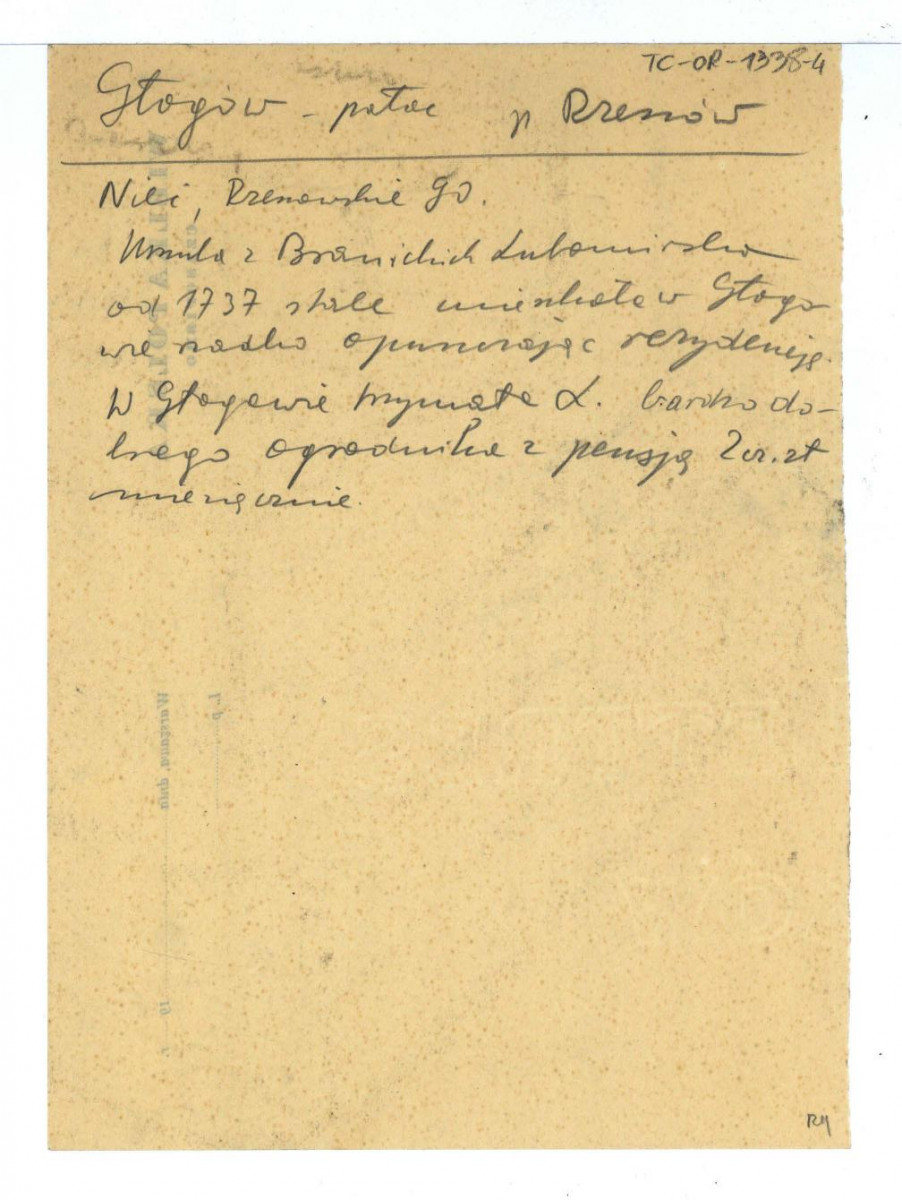 TC-OR-1338-4
Głogów - pałac p Rzeszów
Nieć, Rzeszowskie 90.
Urszula z Branickich Lubomirska
od 1737 stale mieszkała w Głogo
wie rzadko opuszczając rezydencję.
W Głogowie trzymała L. bardzo do-
brego ogrodnika z pensją 2 cz. zł
miesięcznie.
L. p.
Warszawa, dnia 19
RM